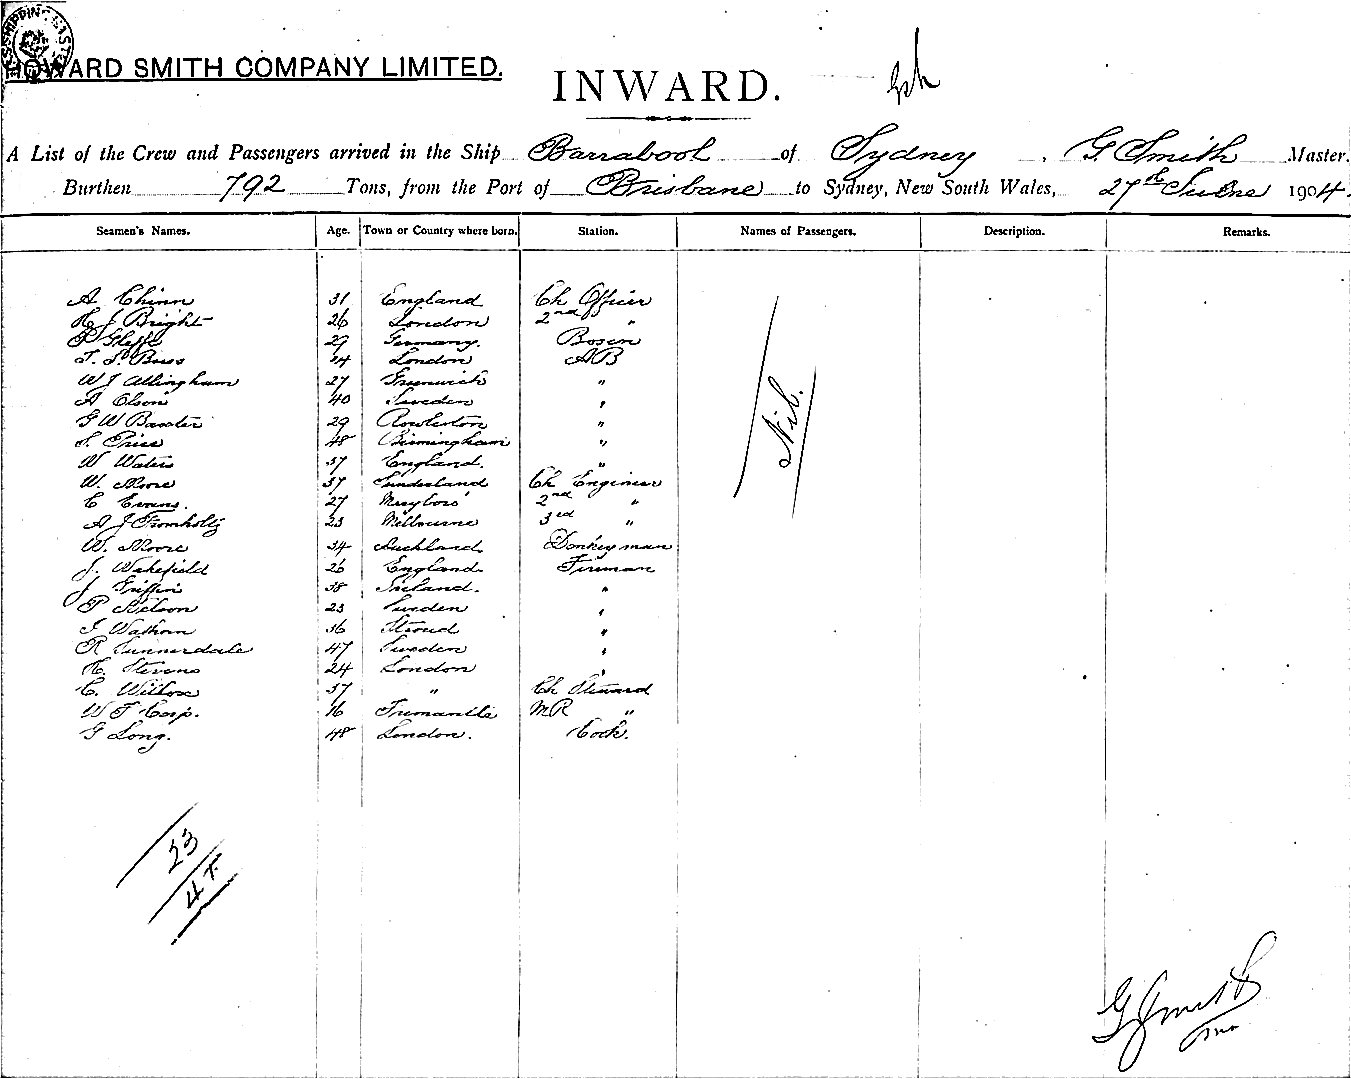 HOWARD SMITH COMPANY LIMITED.
INWARD.
A List of the Crew and Passengers arrived in the Ship Barrabool of Sydney, G Smith Master.
Burthen 792 Tons, from the Port of Brisbane to Sydney, New South Wales, 27th June 1904.
Seamen's Names. Age. Town or Country where born. Station. Names of Passengers. Description. Remarks.
A Chinn 31 England Ch Officer
H J Bright 26 London 2nd "
29 Germany. Bosen
London AB
W J Allingham 27 Greenwich "
A Olson 40 Sweden "
G W Baxter 29 "
S. Price 48 Birmingham "
W Waters 37 England. "
W. Moore 37 Sunderland Ch Engineer
C Evans. 27 Maryboro' 2nd "
A J Fromholtz 23 Melbourne 3rd "
W. Moore 34 Auckland Donkeyman
J. Wakefield 26 England Fireman
J Griffin 38 Ireland. "
P Nelson 23 Sweden "
36 Stroud "
R Sunnerdale 47 Sweden "
H. Stevens 24 London "
C. Wilcox 37 " Ch Steward
W T Carp. 16 Fremantle MR "
G Long. 48 London. Cook.
Nil.
23
G Smith